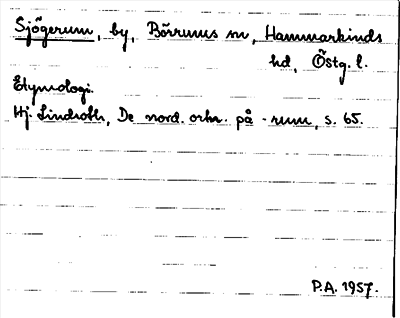 Sjögerum, by, Börrums sn, Hammarkinds
hd, Östg. l.
Etymologi.
Hj. Lindroth, De nord. ortn. på -rum, s. 65.
P.A. 1957.